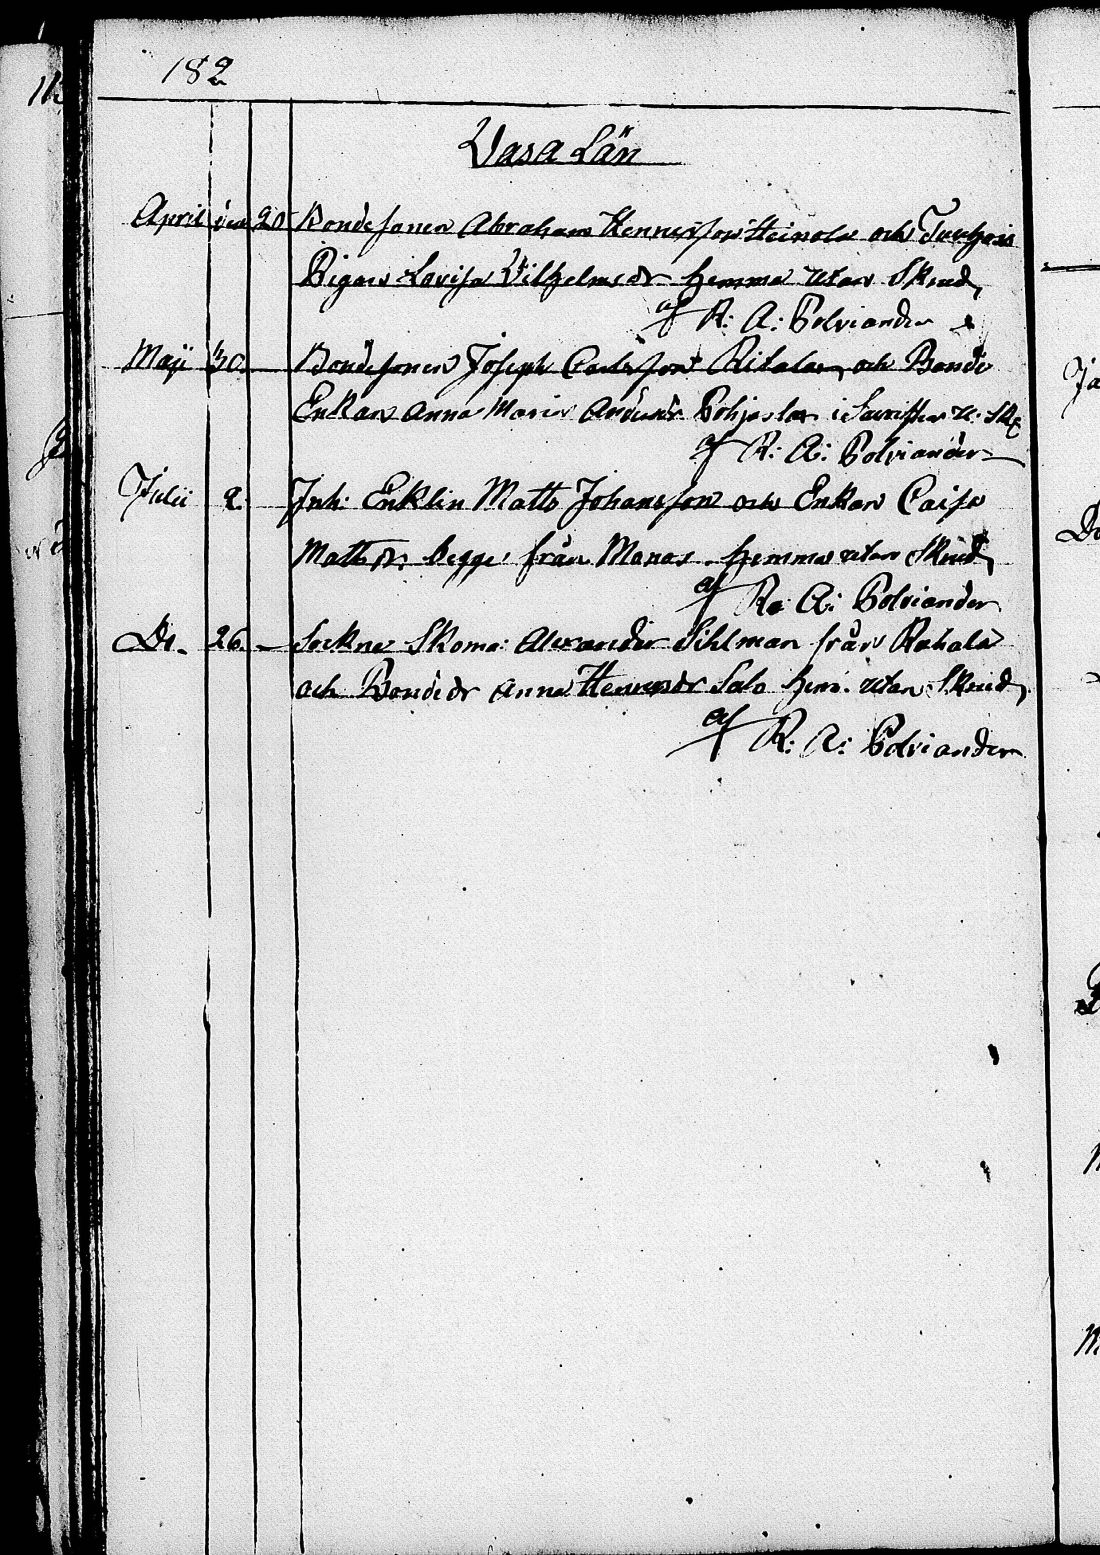 182
Vasa Län
April den 20 Bondesonen Abraham Hennersson Heinola och
Pigan Lovisa Vilhelmsdr hemma utan Skud,
af R: A: Polviander
Maji 30. Bondesonen Joseph Carlsson Ritala, och Bonde
Enkan Anna Maria Andersdr Pohjasla i u: Sk
af R: A: Polviander
Julii 2. Inh: Enklin Matts Johansson och Enkan Caisa
Mattsdr, begge från Manas hemma utan Skud,
af R: A: Polviander
Do. 26. Sockne Skoma: Alexander Sihlman från Rahala
och Bondedr Anna Hennersdr Salo hem: utan Skud,
af R: A: Polviander